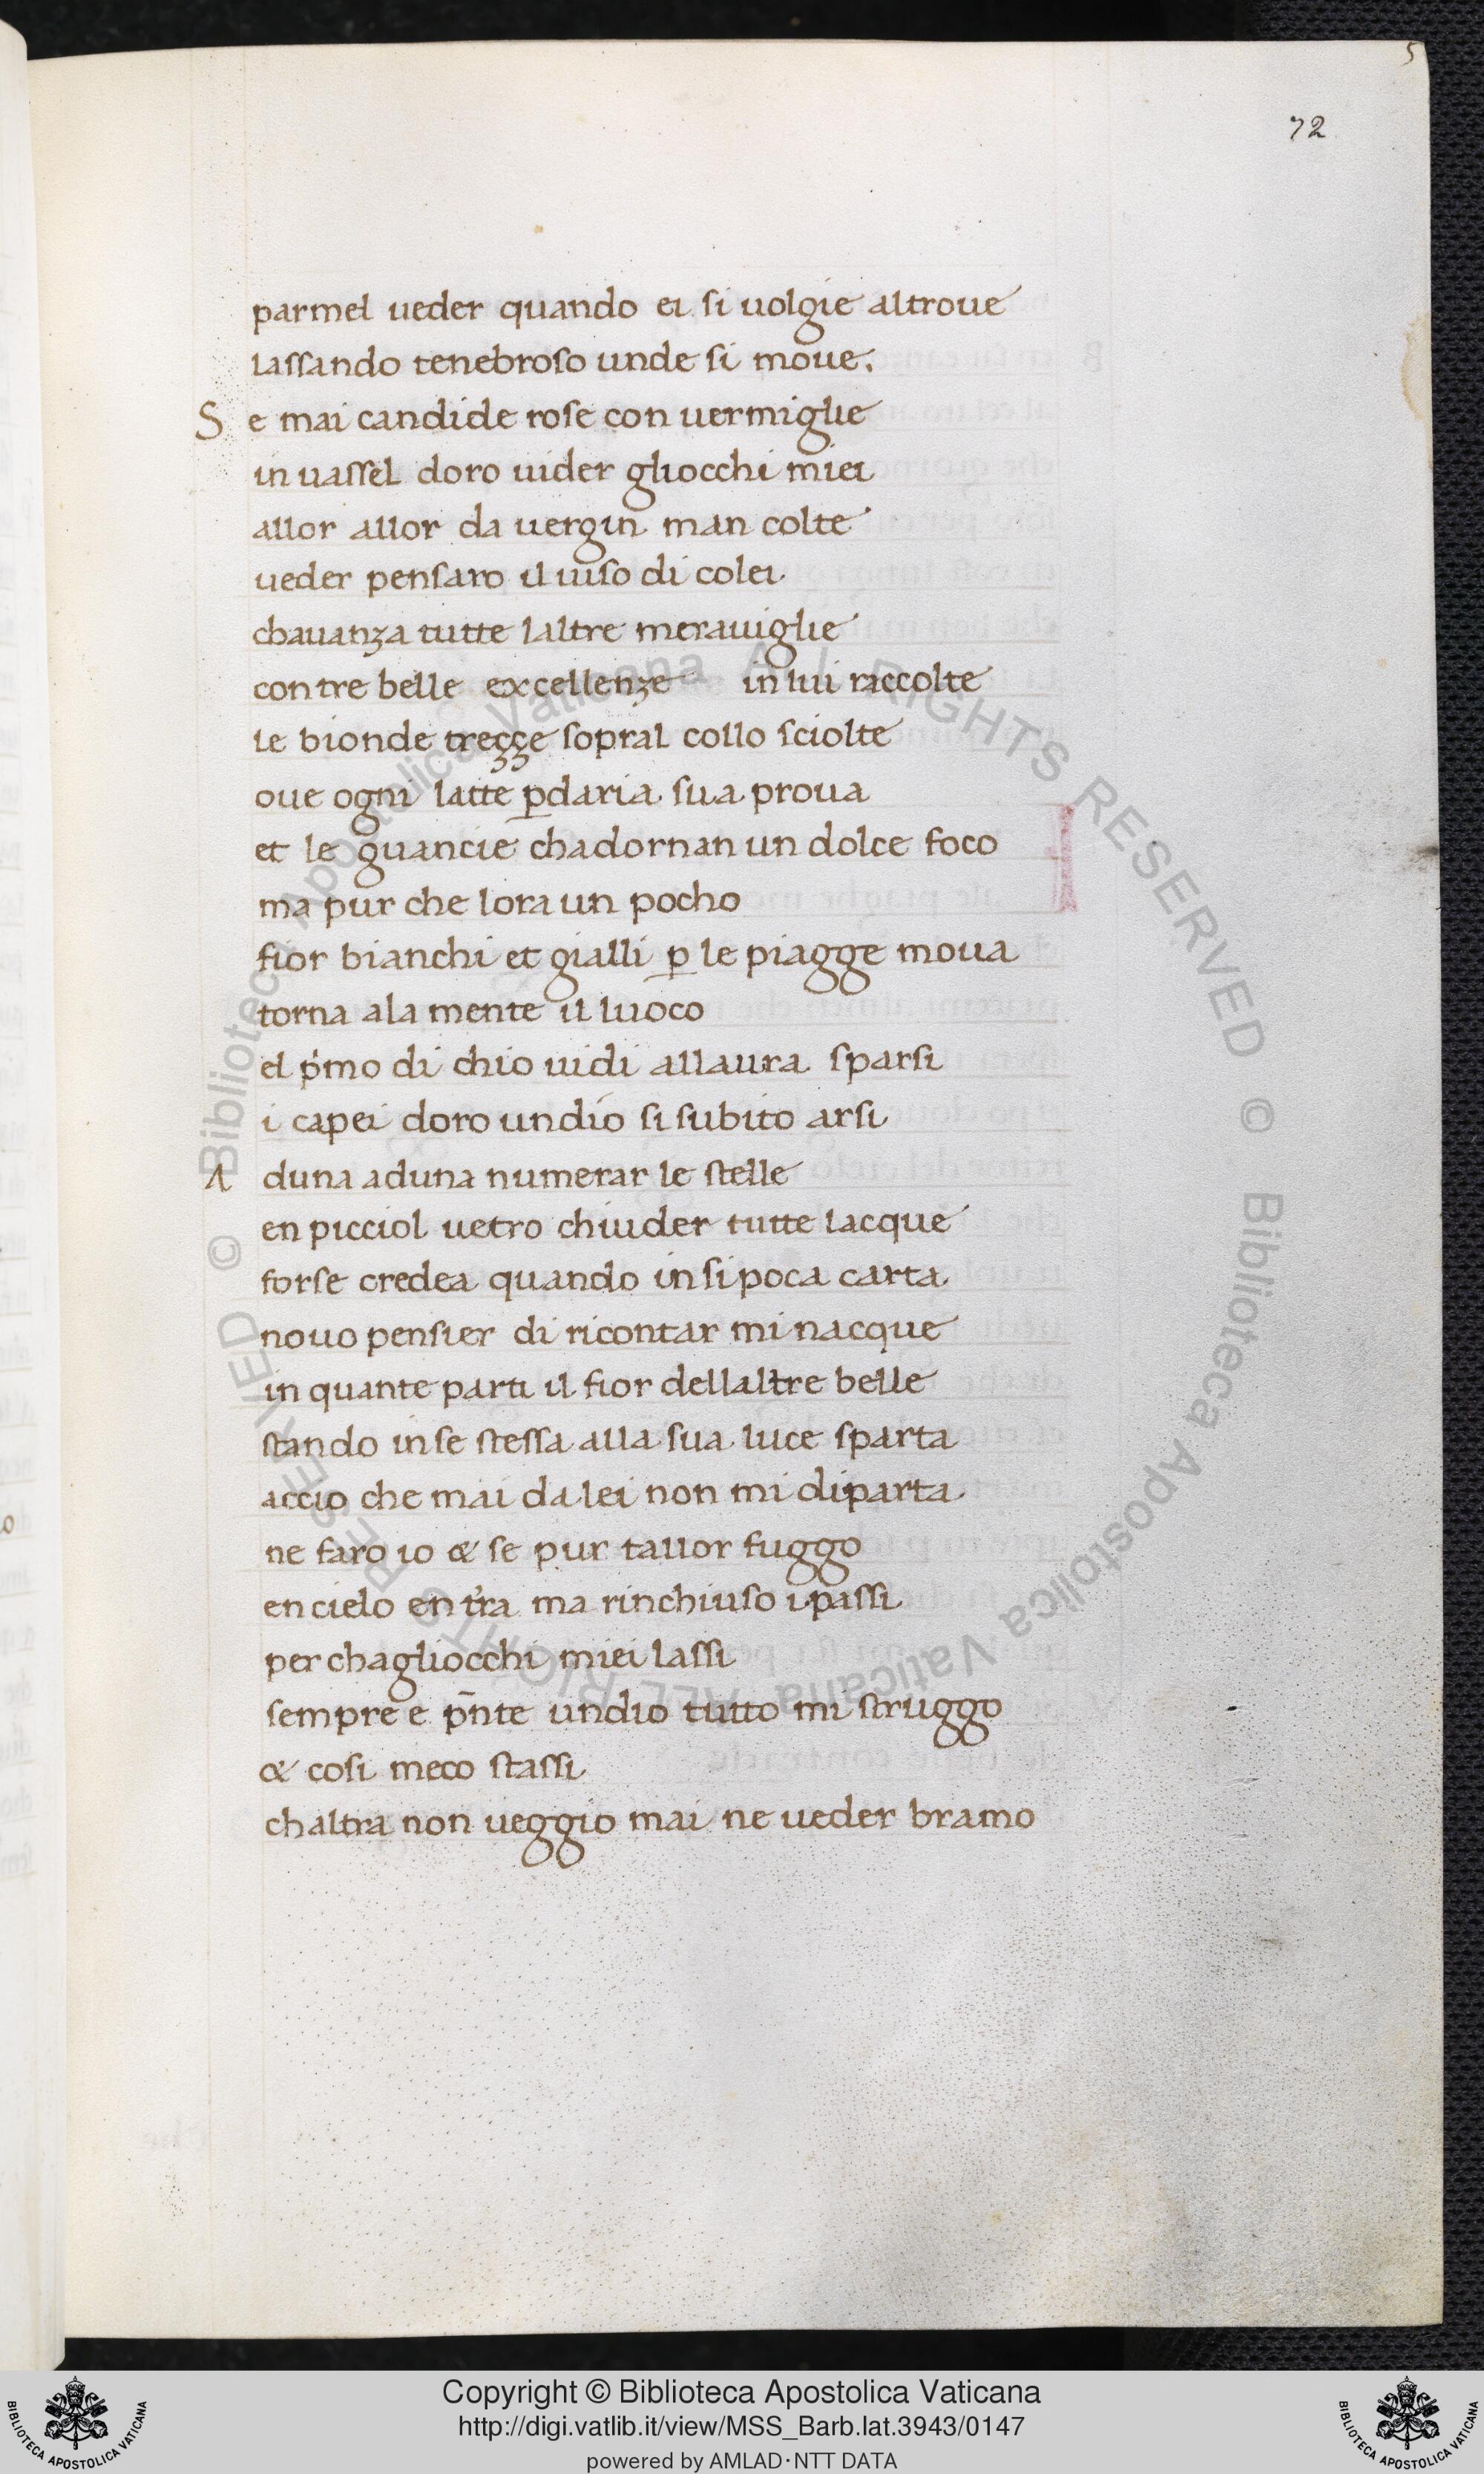 5
72
parmel ueder quando ei si uolgie altroue
lassando tenebroso unde si moue.
S e mai candide rose con uermiglie
in uassel doro uider gliocchi miei
allor allor da uergin man colte
ueder pensaro il uiso di colei
chauanza tutte laltre merauiglie
con tre belle excellenze in lui raccolte
le bionde treçze sopral collo sciolte
oue ogni latte ꝑdaria sua proua
et le guancie chadornan un dolce foco
ma pur che lora un pocho
fior bianchi et gialli ꝑ le piagge moua
torna a la mente il luoco
el pͥmo di chio uidi allaura sparsi
i capei doro undio si subito arsi
A duna aduna numerar le stelle
en picciol uetro chiuder tutte lacque
forse credea quando in si poca carta
nouo pensier di ricontar mi nacque
in quante parti il fior dellaltre belle
stando in se stessa alla sua luce sparta
accio che mai da lei non mi diparta
ne faro io & se pur tallor fuggo
en cielo en tr̃a ma rinchiuso i passi
per chagliocchi miei lassi
sempre e p̄nte undio tutto mi struggo
& cosi meco stassi
chaltra non ueggio mai ne ueder bramo
© Biblioteca Apostolica Vaticana ALL RIGHTS RESERVED © Biblioteca Apostolica Vaticana ALL RIGHTS RESERVED
Copyright © Biblioteca Apostolica Vaticana
http://digi.vatlib.it/view/MSS_Barb.lat.3943/0147
powered by AMLAD·NTT DATA
BIBLIOTECA APOSTOLICA VATICANA
BIBLIOTECA APOSTOLICA VATICANA